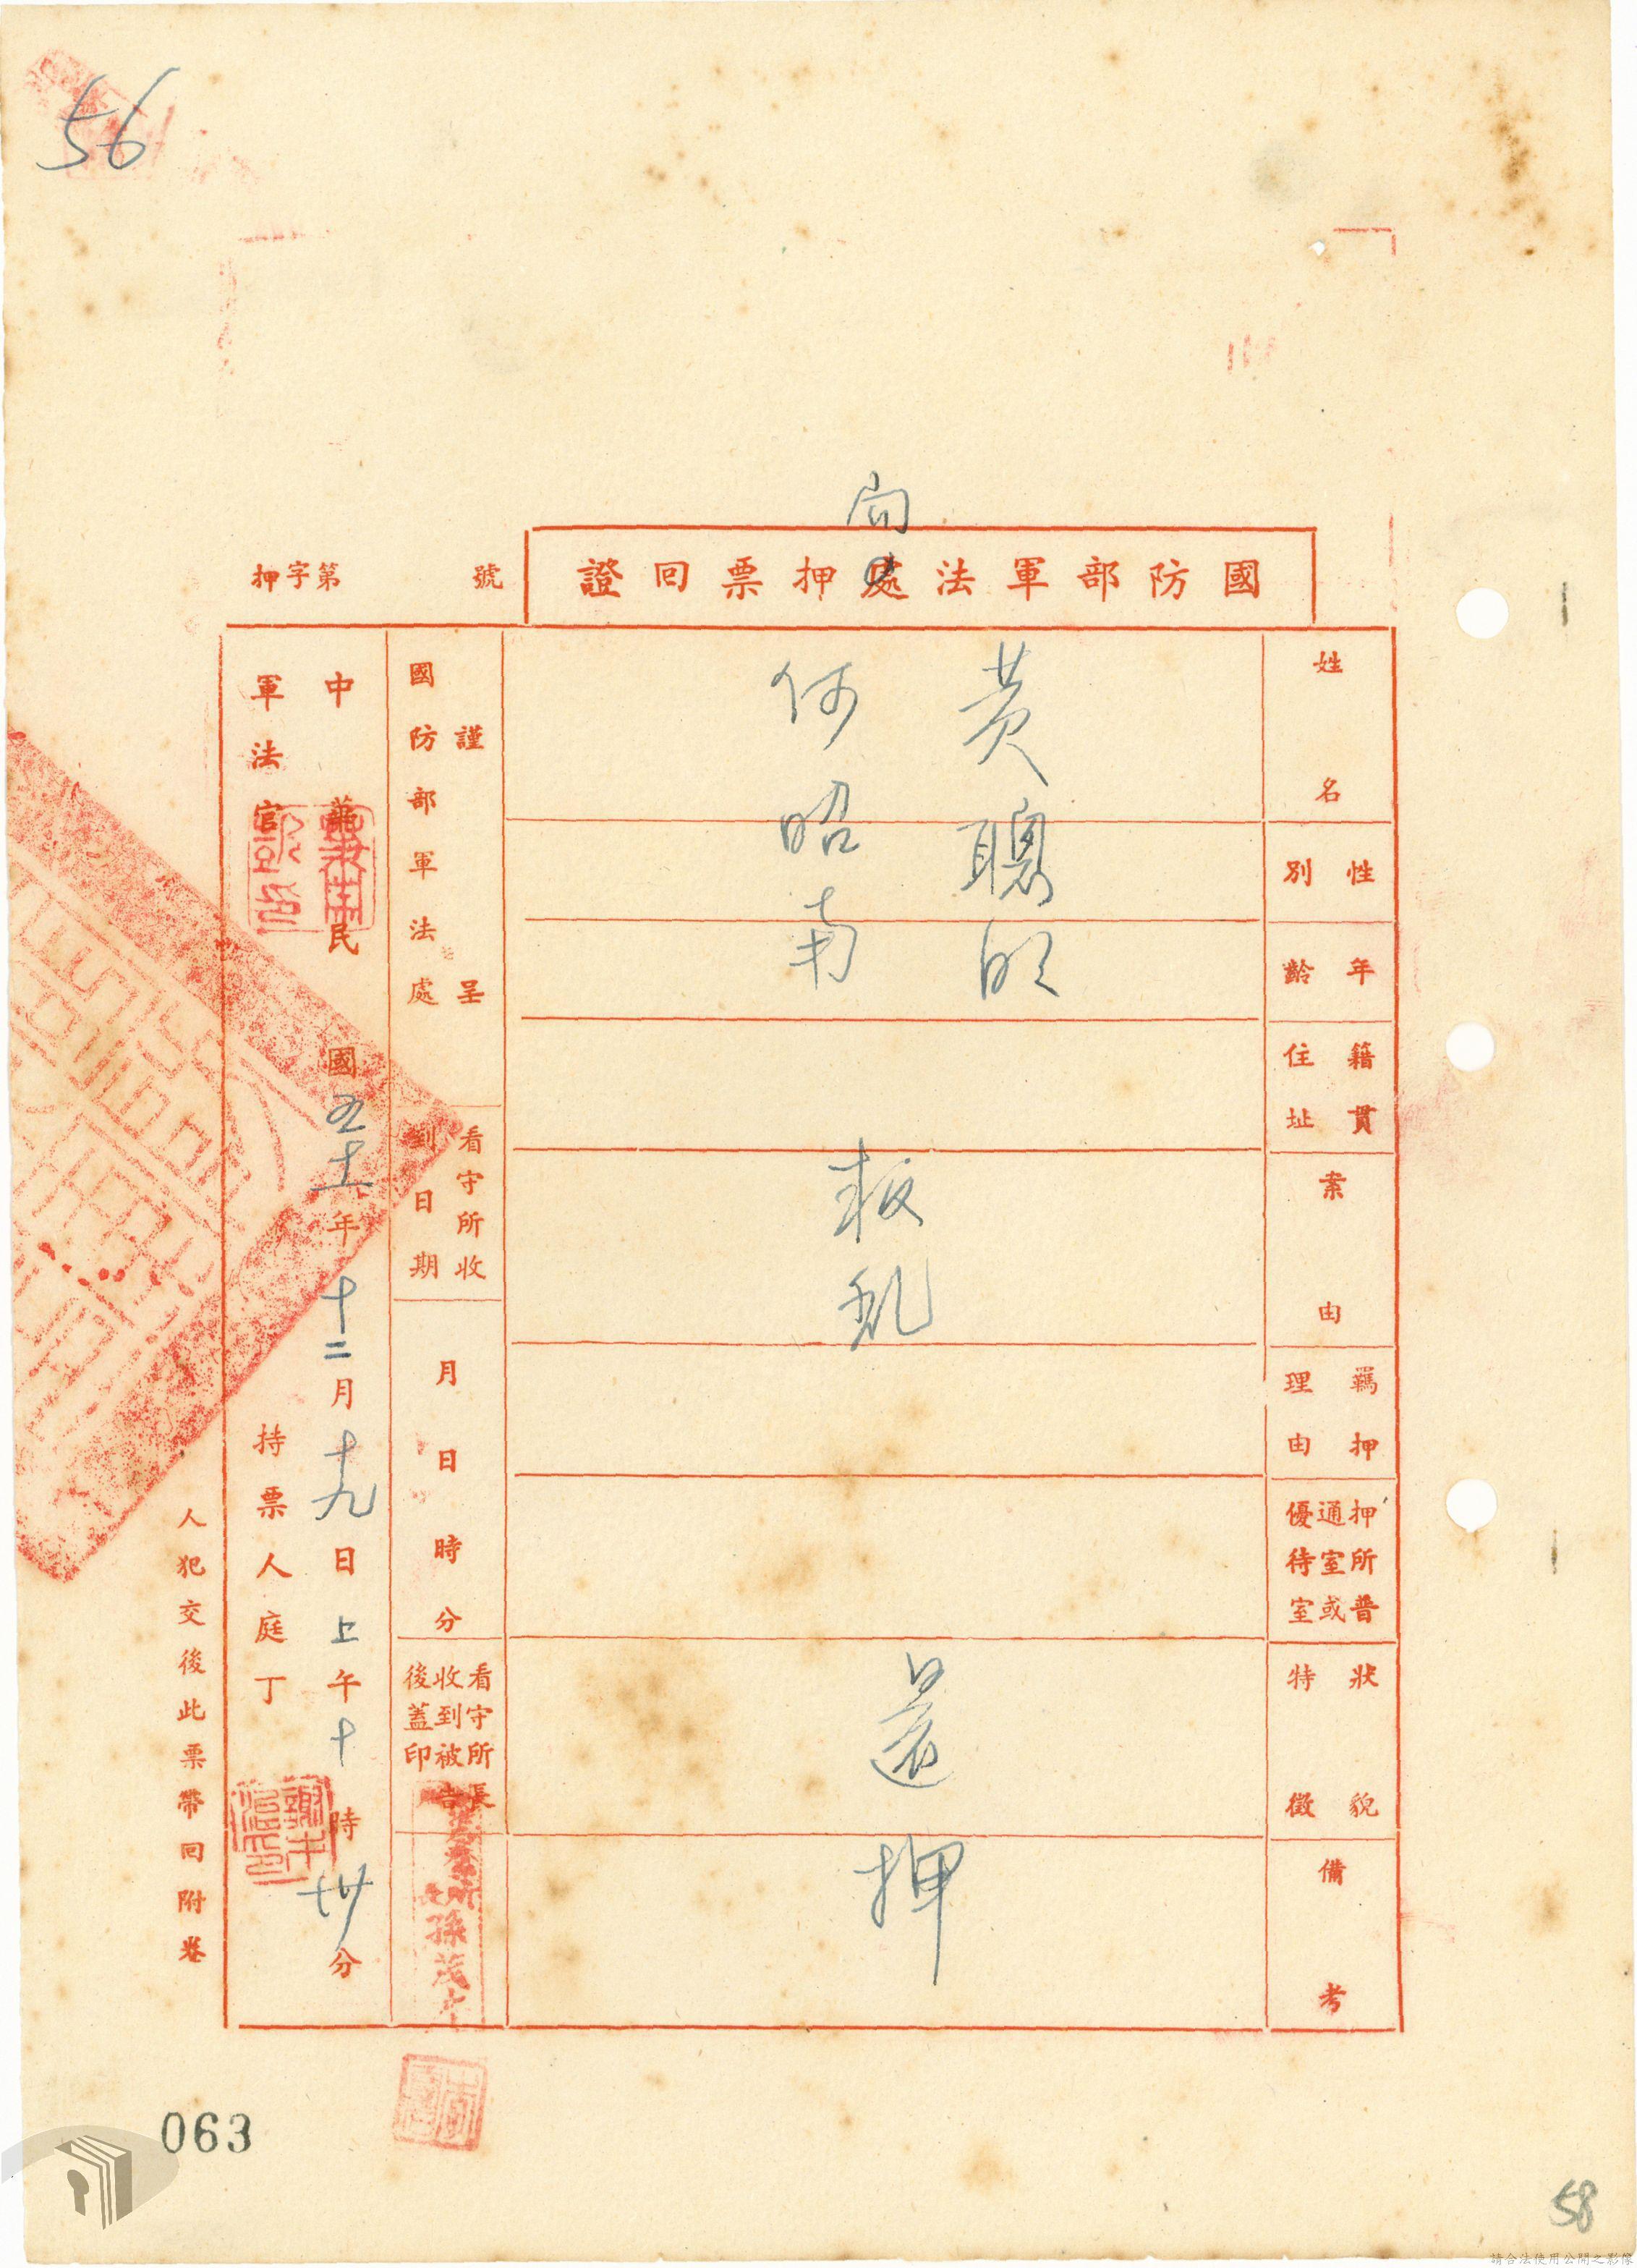 56
局
國防部軍法處押票回證
押字第 號
姓名
黃聰明
何昭南
性別
年齡
籍貫
住址
案由
叛亂
羈押理由
押所普通室或優待室
狀貌特徵
還
備考
押
謹呈
國防部軍法處
看守所收到日期
月日時分
看守所長收到被告後蓋印
孫茂
中華民國五十一年十二月十九日上午十時卅分
軍法官
持票人庭丁
人犯交後此票帶回附卷
063
58
請合法使用公開之影像